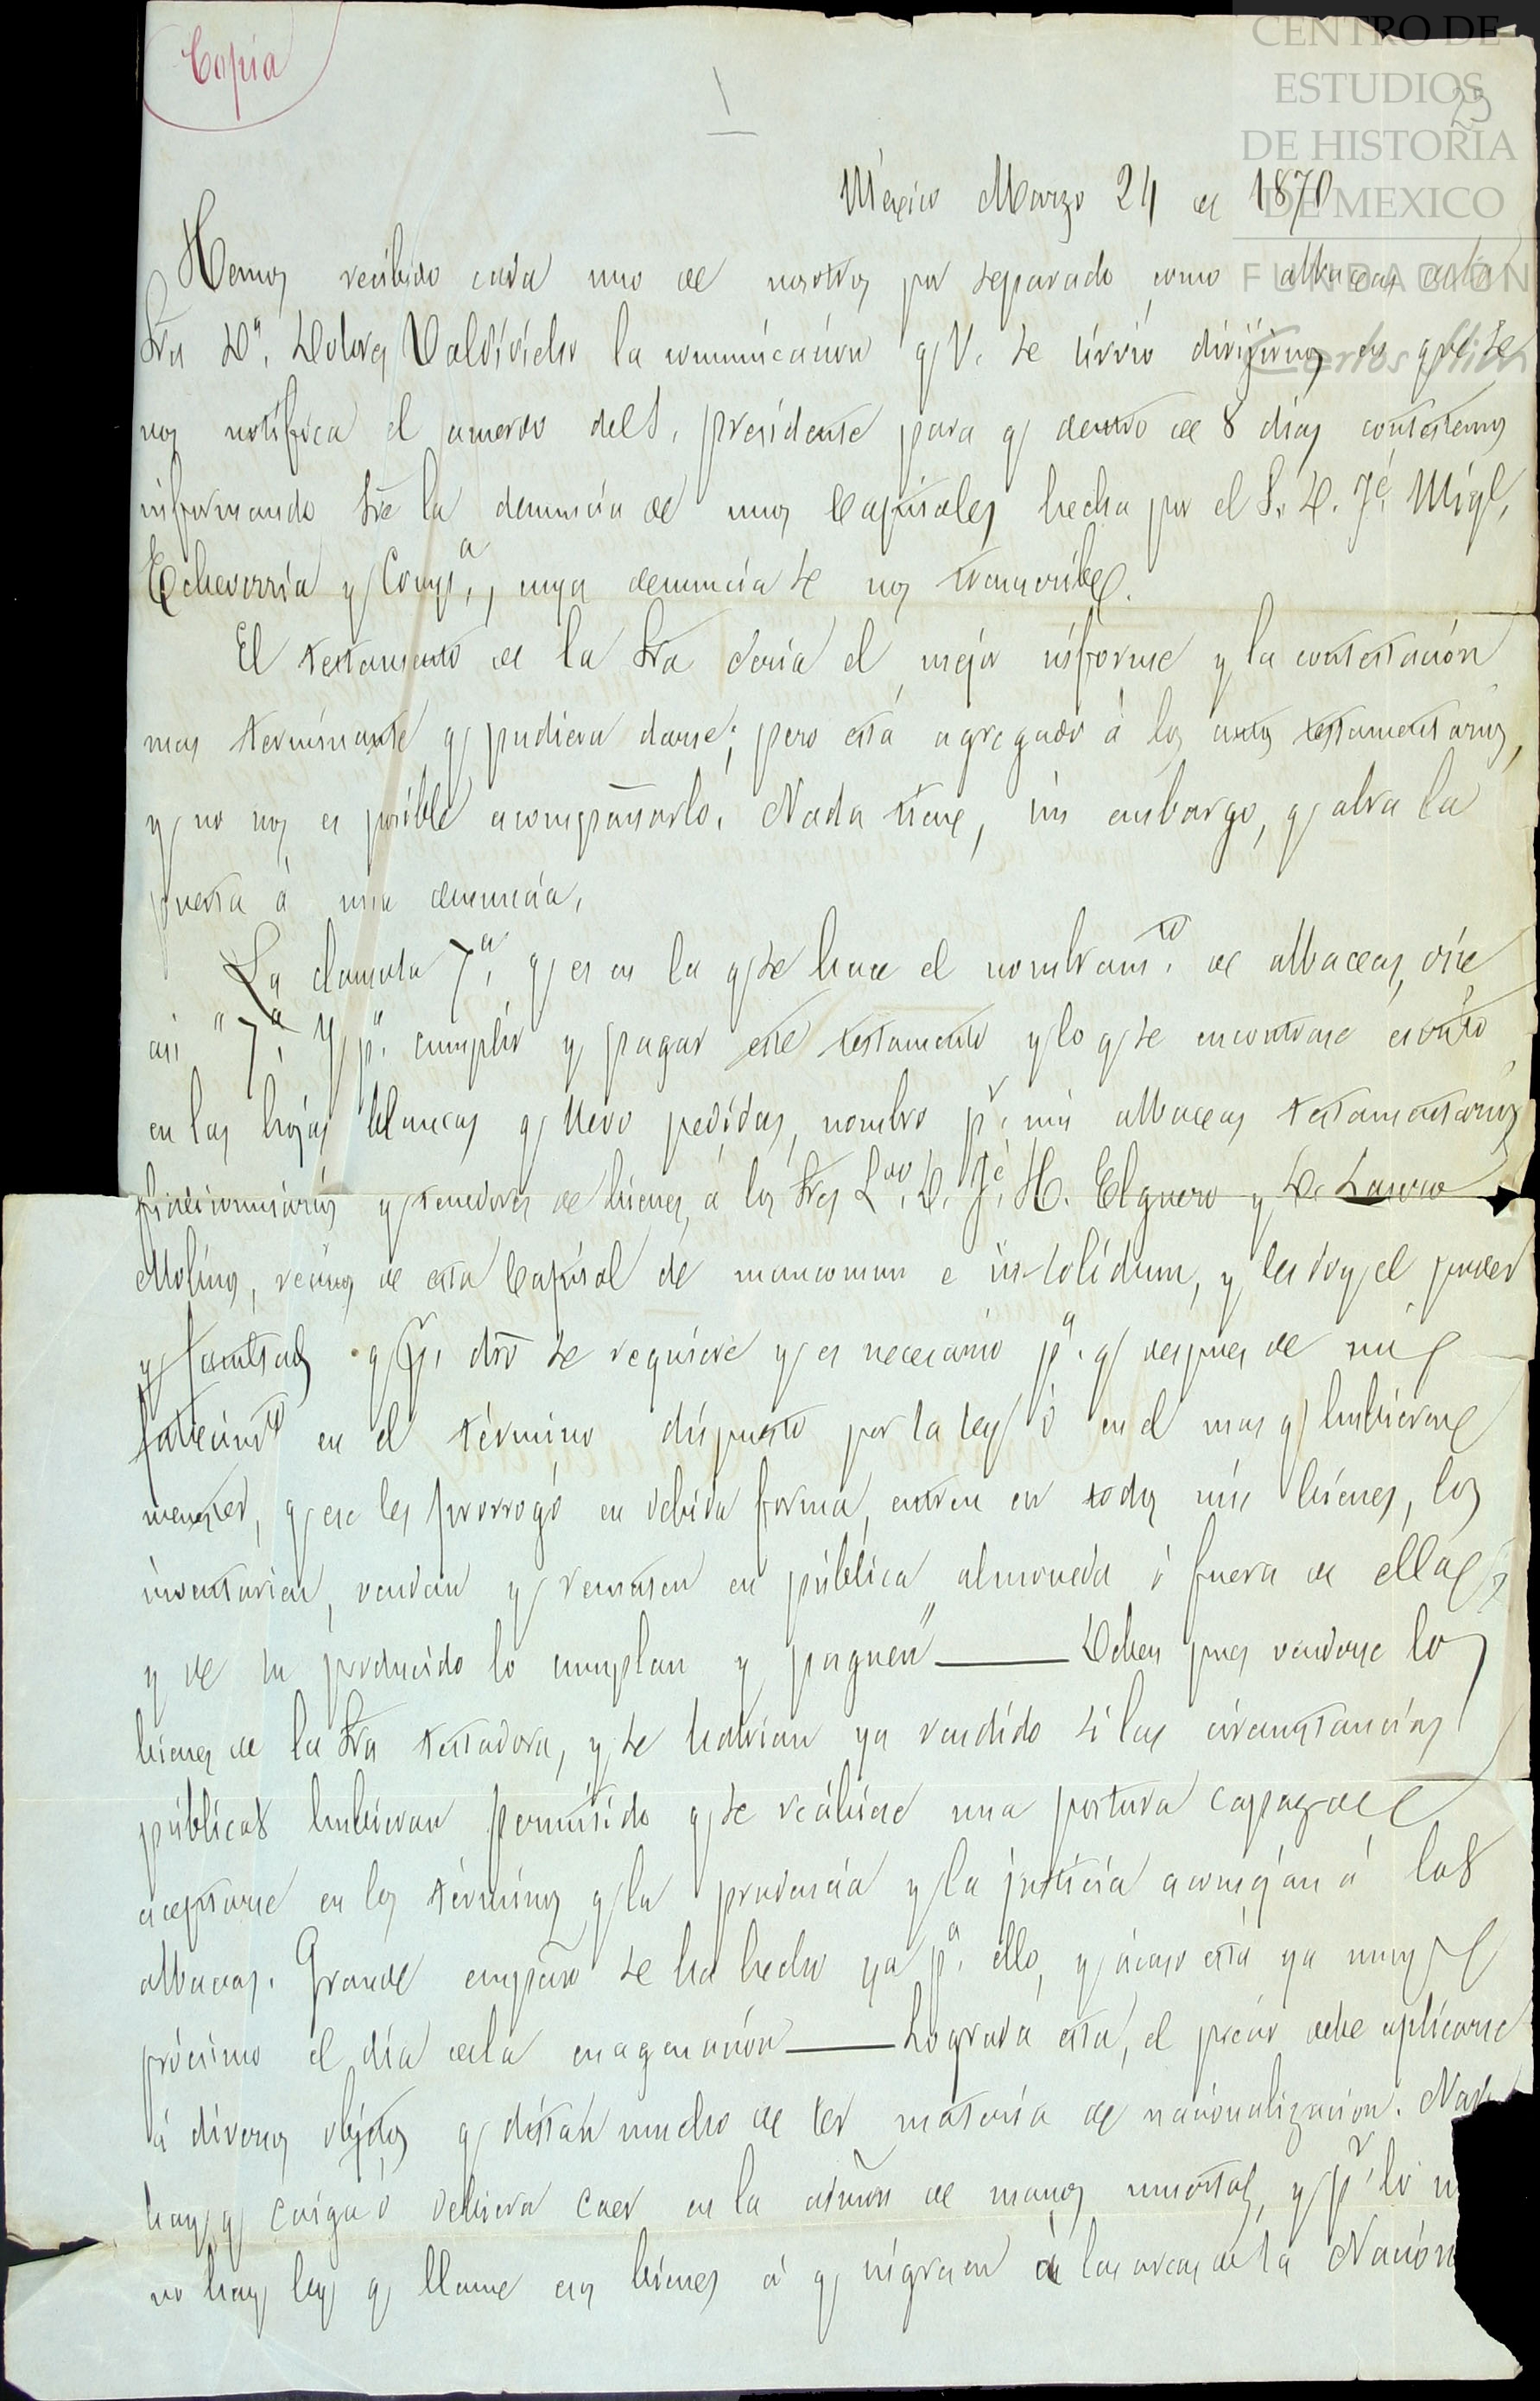 Copia
CENTRO DE
ESTUDIOS
25
DE HISTORIA
DE MEXICO
FUNDACION
Carlos Slim
México Marzo 24 de 1870
Hemos recibido cada uno de nosotros por separado como albaceas de la
Sra Dª. Dolores Valdivielso la comunicacion q V. se sirvió dirijirnos en que se
nos notifica el acuerdo del S. presidente para q dentro de 8 dias contestemos
informando sre la denuncia de unos Capitales hecha por el S. D. Jé. Migl.
Echeverria y Compª., cuya denuncia se nos transcribe.
El testamento de la Sra daria el mejor informe y la contestación
mas terminante q pudiera darse; pero está agregado á los autos testamentarios,
y no nos es posible acompañarlo. Nada tiene, sin embargo, q abra la
puerta á una denuncia.
La clausula 7ª. q es en la q se hace el nombramto. de albaceas, dice
asi "7ª. Y pª. cumplir y pagar este testamento y lo q se encontrase escrito
en las hojas blancas q llevo pedidas, nombro pr. mis albaceas testamentarios
fideicomisarios y tenedores de bienes, á los Sres Lcdo. D. Jé. H. Elguero y D.
Molino, vecinos de esta Capital de mancomun e in-solidum, y les doy el poder
y facultad q pr. dro se requiere y es necesario pª. q despues de mi
fallecimto en el término dispuesto por la ley ó en el mas q hubieren
menester, q ese les prorrogó en debida forma, entren en todos mis bienes, los
inventarien, vendan y rematen en pública almoneda ó fuera de ella,
y de su producido lo cumplan y paguen" —— Deben pues venderse los
bienes de la Sra testadora, y se habrian ya vendido si las circunstancias
públicas hubieran permitido q se recibiese una postura capaz de
aceptarse en los términos q la prudencia y la justicia aconsejan á los
albaceas. Grande empeño se ha hecho ya pª. ello, y acaso está ya muy
prócsimo el dia de la enagenación —— Lograda esta, el precio debe aplicarse
á diversos objetos q distan mucho de ser materia de nacionalizacion.
hay q caiga ó debiera caer en la de manos muertas, y pr. lo
no hay ley q llame esos bienes á q ingresen á las arcas de la Nación